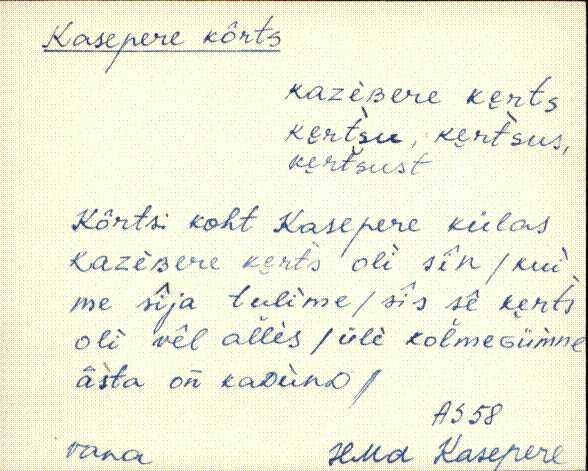 Kasepere kõrts
kazèʙere ke̮rts
ke̮rt̀su, ke̮rt̀sus,
ke̮rt̀sust
Kõrtsi koht Kasepere külas
kazèʙere ke̮rts oli sîn / kui
me sîja tulìme / sîs sê ke̮rts
oli vêl allès / ülè kolmeɢümne
âsta on kaᴅùnᴅ /
AS 58
vana HMd Kasepere